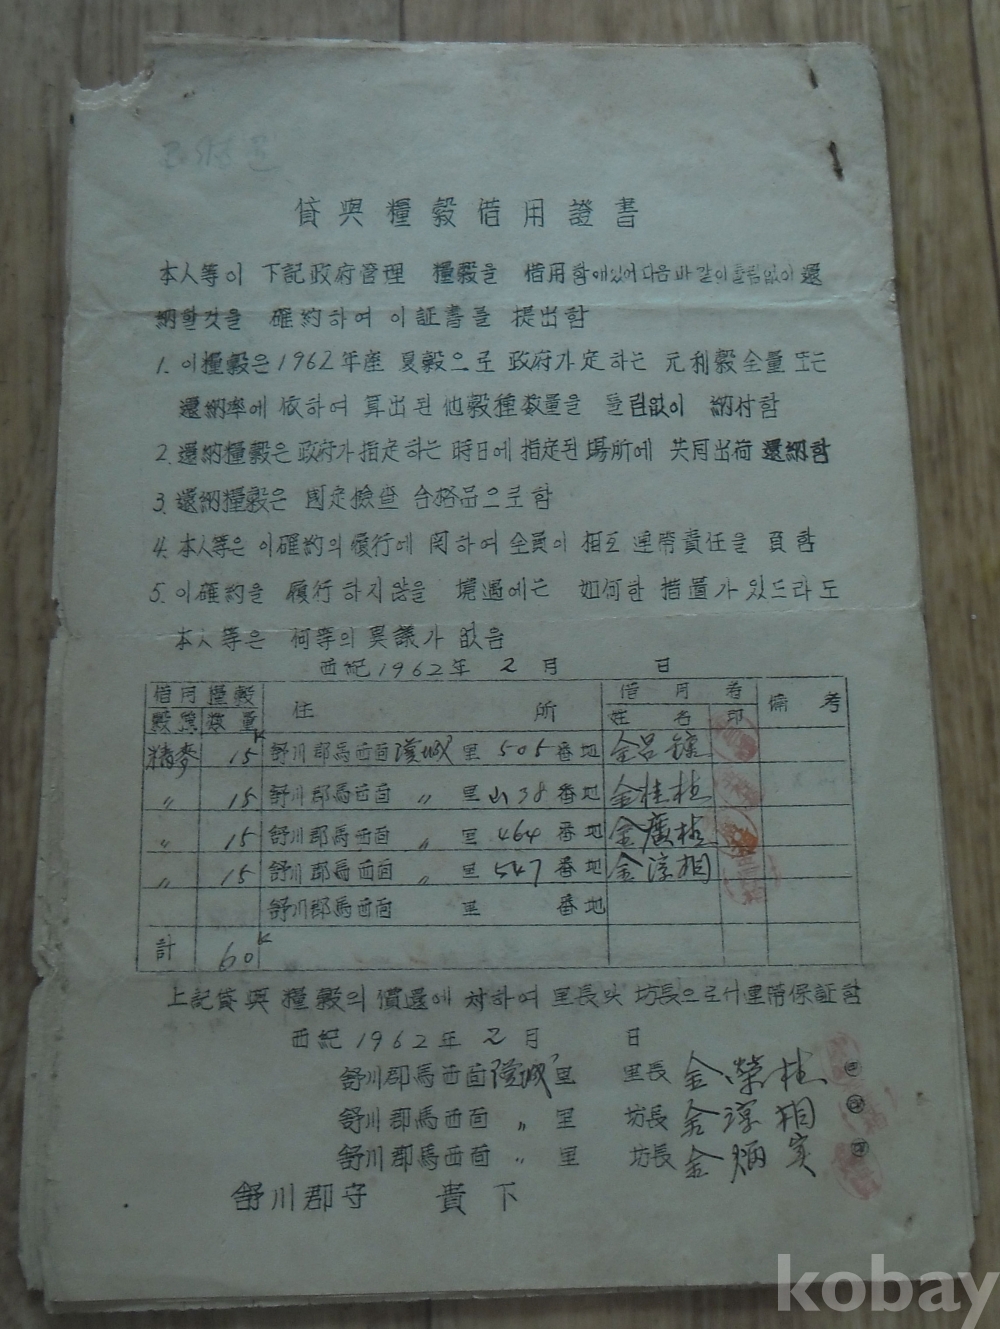 貸與糧穀借用證書
本人等이 下記政府管理 糧穀을 借用함에있어다음과같이틀림없이還
納할것을 確約하여이証書를 提出함
1. 이糧穀은1962年産夏穀으로 政府가定하는 元利穀全量또는
還納率에依하여算出된他穀種数量을틀림없이 納付함
2. 還納糧穀은政府가指定하는時日에指定된場所에共同出荷還納함
3. 還納糧穀은 国定檢查合格品으로함
4. 本人等은이確約의履行에関하여全員이相互連帶責任을負함
5. 이確約을履行하지않을 境遇에는 如何한措置가있드라도
本人等은何等의異議가없음
西紀1962年 2月 日
借用糧穀 住所 借用者 備考
数量 姓名 印
精麥 15K 舒川郡馬西面 里505番地
〃 15 舒川郡馬西面 〃 里山38番地 金桂植
〃 15 舒川郡馬西面 〃 里464番地 金廣植
〃 15 舒川郡馬西面 〃 里547番地 金淳相
舒川郡馬西面 里 番地
計 60K
上記貸與糧穀의償還에対하여里長및坊長으로서連帶保証함
西紀1962年 2月 日
舒川郡馬西面 里 里長 金榮植 印
舒川郡馬西面 〃 里 坊長 金淳相 印
舒川郡馬西面 〃 里 坊長 金炳 印
舒川郡守 貴下
kobay